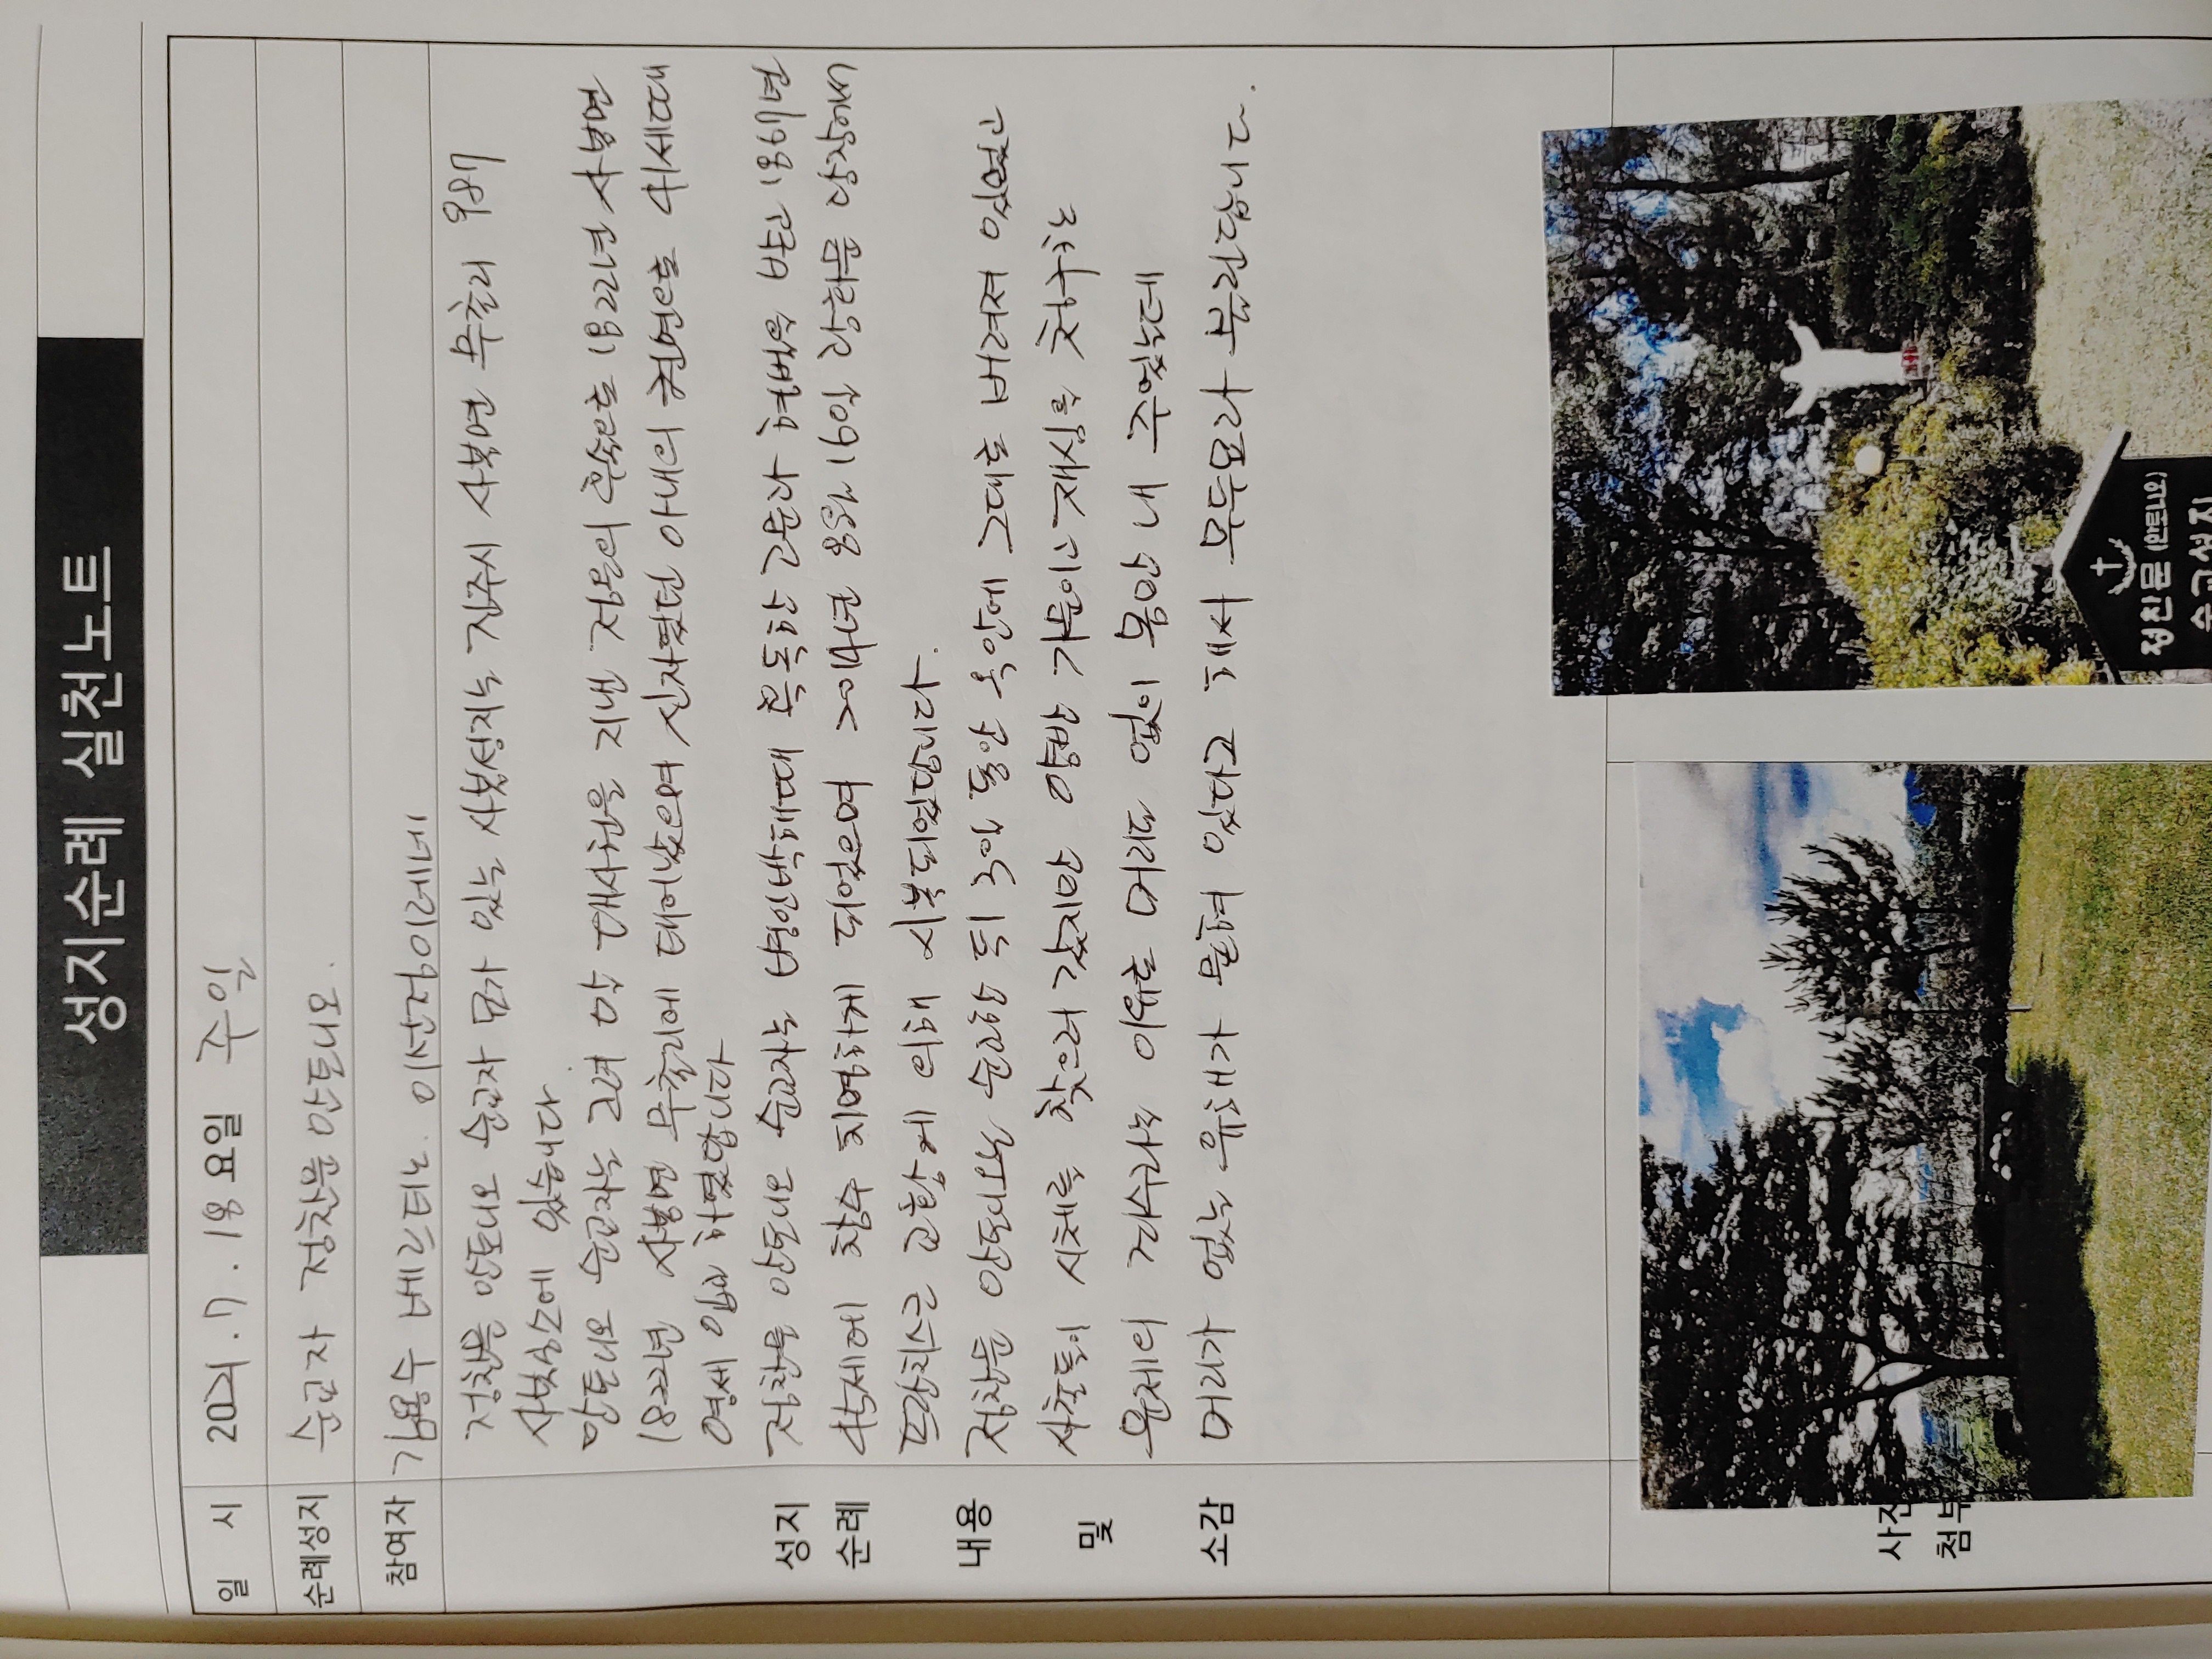 성지순례 실천노트
일 시 2021.7.18 요일 주일
순례성지 순교자 정찬문 안토니오.
참여자 김용수 베르티노. 이선정이레네
정찬문 안토니오 순교자 묘가 있는 사봉성지는 진주시 사봉면 무촌리 987
사봉공소에 있습니다
안토니오 순교자는 고려 말 대사헌을 지낸 정온의 후손으로 1822년 사봉면
1822년 사봉면 무촌리에 태어났으며 신자였던 아내의 권면으로 41세때
영세 입교 하였답니다
정찬문 안토니오 순교자는 병인박해때 혹독한 고문과 형벌을 받고 1867년
45세에 장수 치명하게 되었으며 2014년 8월 16일 광화문 광장에서
프란치스코 교황에 의해 시복되었답니다.
정찬문 안토니오는 순교한 뒤 3일 동안 옥안에 그대로 버려져 있었고
사촌들이 시체를 찾으러 갔지만 양반 가문이고 재심을 청구한
문제의 죄수라는 이유로 머리도 없이 몸만 내 주었는데
머리가 없는 유해가 묻혀 있다고 해서 무두묘라 불린답니다.
성지
순례
내용
및
소감
사진
첨부
정찬문 (안토니오)
순교성지